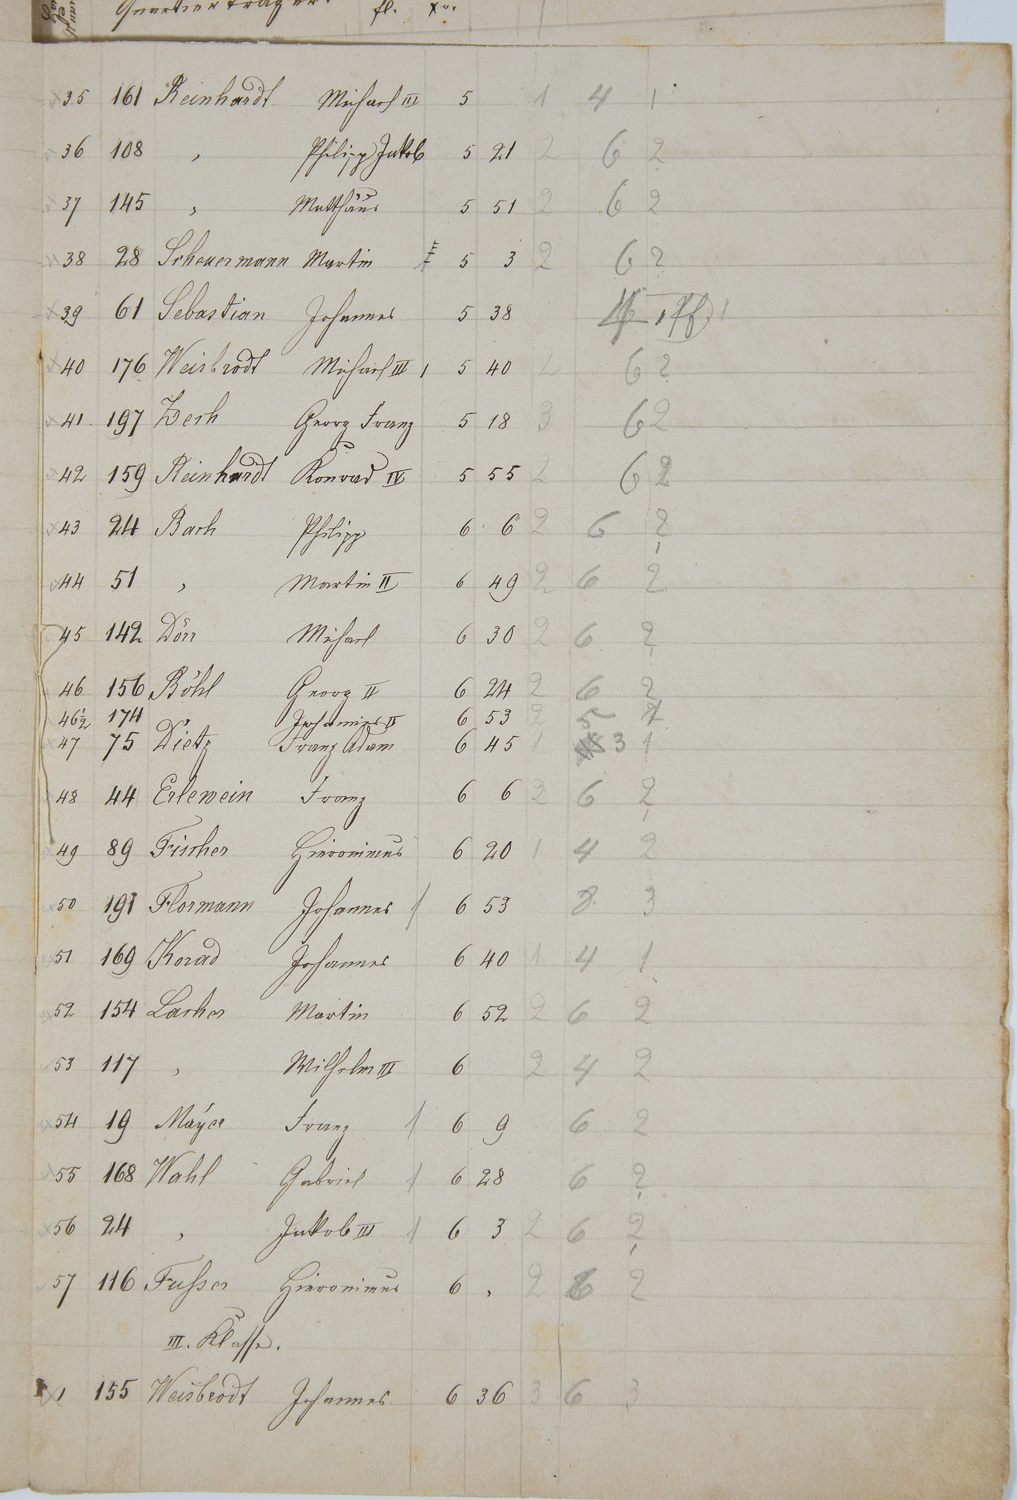 Quartierträger. fl. xr.
35 161 Reinhardt Michael III 5 1 4 1
36 108 „ Philipp Jakob 5 21 2 6 2
37 145 „ Matthäus 5 51 2 6 2
38 28 Scheuermann Martin 5 3 2 6 2
39 61 Sebastian Johannes 5 38
40 176 Weisbrodt Michael III 1 5 40 2 6 2
41 197 Zech Georg Franz 5 18 3 6 2
42 159 Reinhardt Konrad IV 5 55 2 6 2
43 24 Bach Philipp 6 6 2 6 2
44 51 „ Martin II 6 49 2 6 2
45 142 Dörr Michael 6 30 2 6 2
46 156 Böhl Georg II 6 24 2 6 2
46½ 174 Johannes II 6 53 2 5
47 75 Dietz Franz Adam 6 45 1 3 1
48 44 Erlewein Franz 6 6 2 6 2
49 89 Fischer Hieronimus 6 20 1 4 2
50 191 Flormann Johannes 1 6 53 8 3
51 169 Korad Johannes 6 40 1 4 1
52 154 Lacher Martin 6 52 2 6 2
53 117 „ Wilhelm III 6 2 4 2
54 19 Mayer Franz 1 6 9 6 2
55 168 Wahl Gabriel 1 6 28 6 2
56 24 „ Jakob III 1 6 3 2 6 2
57 116 Fusser Hieronimus 6 „ 2 6 2
III. Klasse.
1 155 Weisbrodt Johannes 6 36 3 6 3